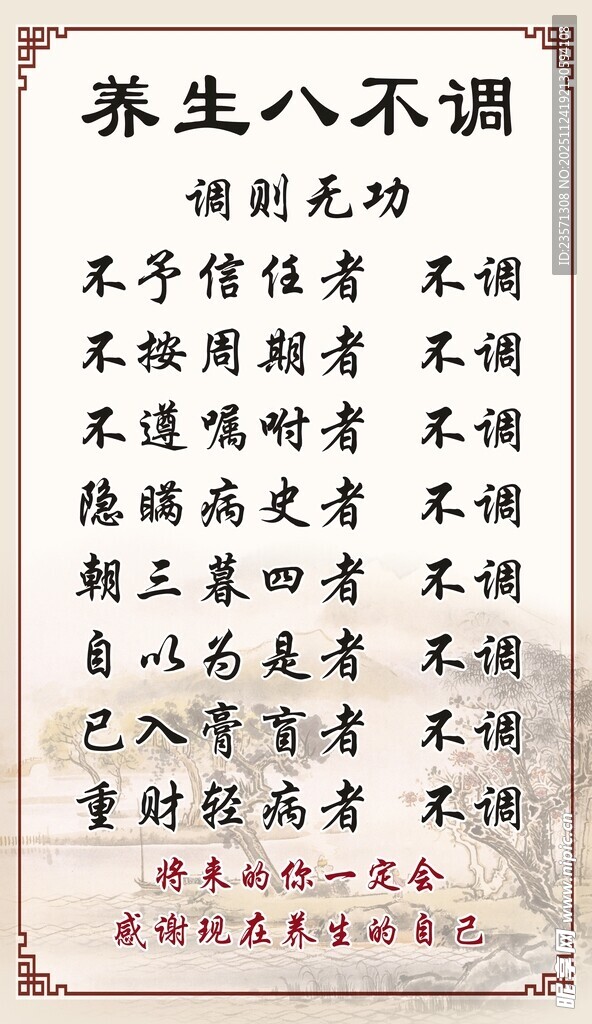 养生八不调
调则无功
不予信任者 不调
不按周期者 不调
不遵嘱咐者 不调
隐瞒病史者 不调
朝三暮四者 不调
自以为是者 不调
已入膏盲者 不调
重财轻病者 不调
将来的你一定会
感谢现在养生的自己
ID:23571308 NO:20251124192130594108
昵享网 www.nipic.cn